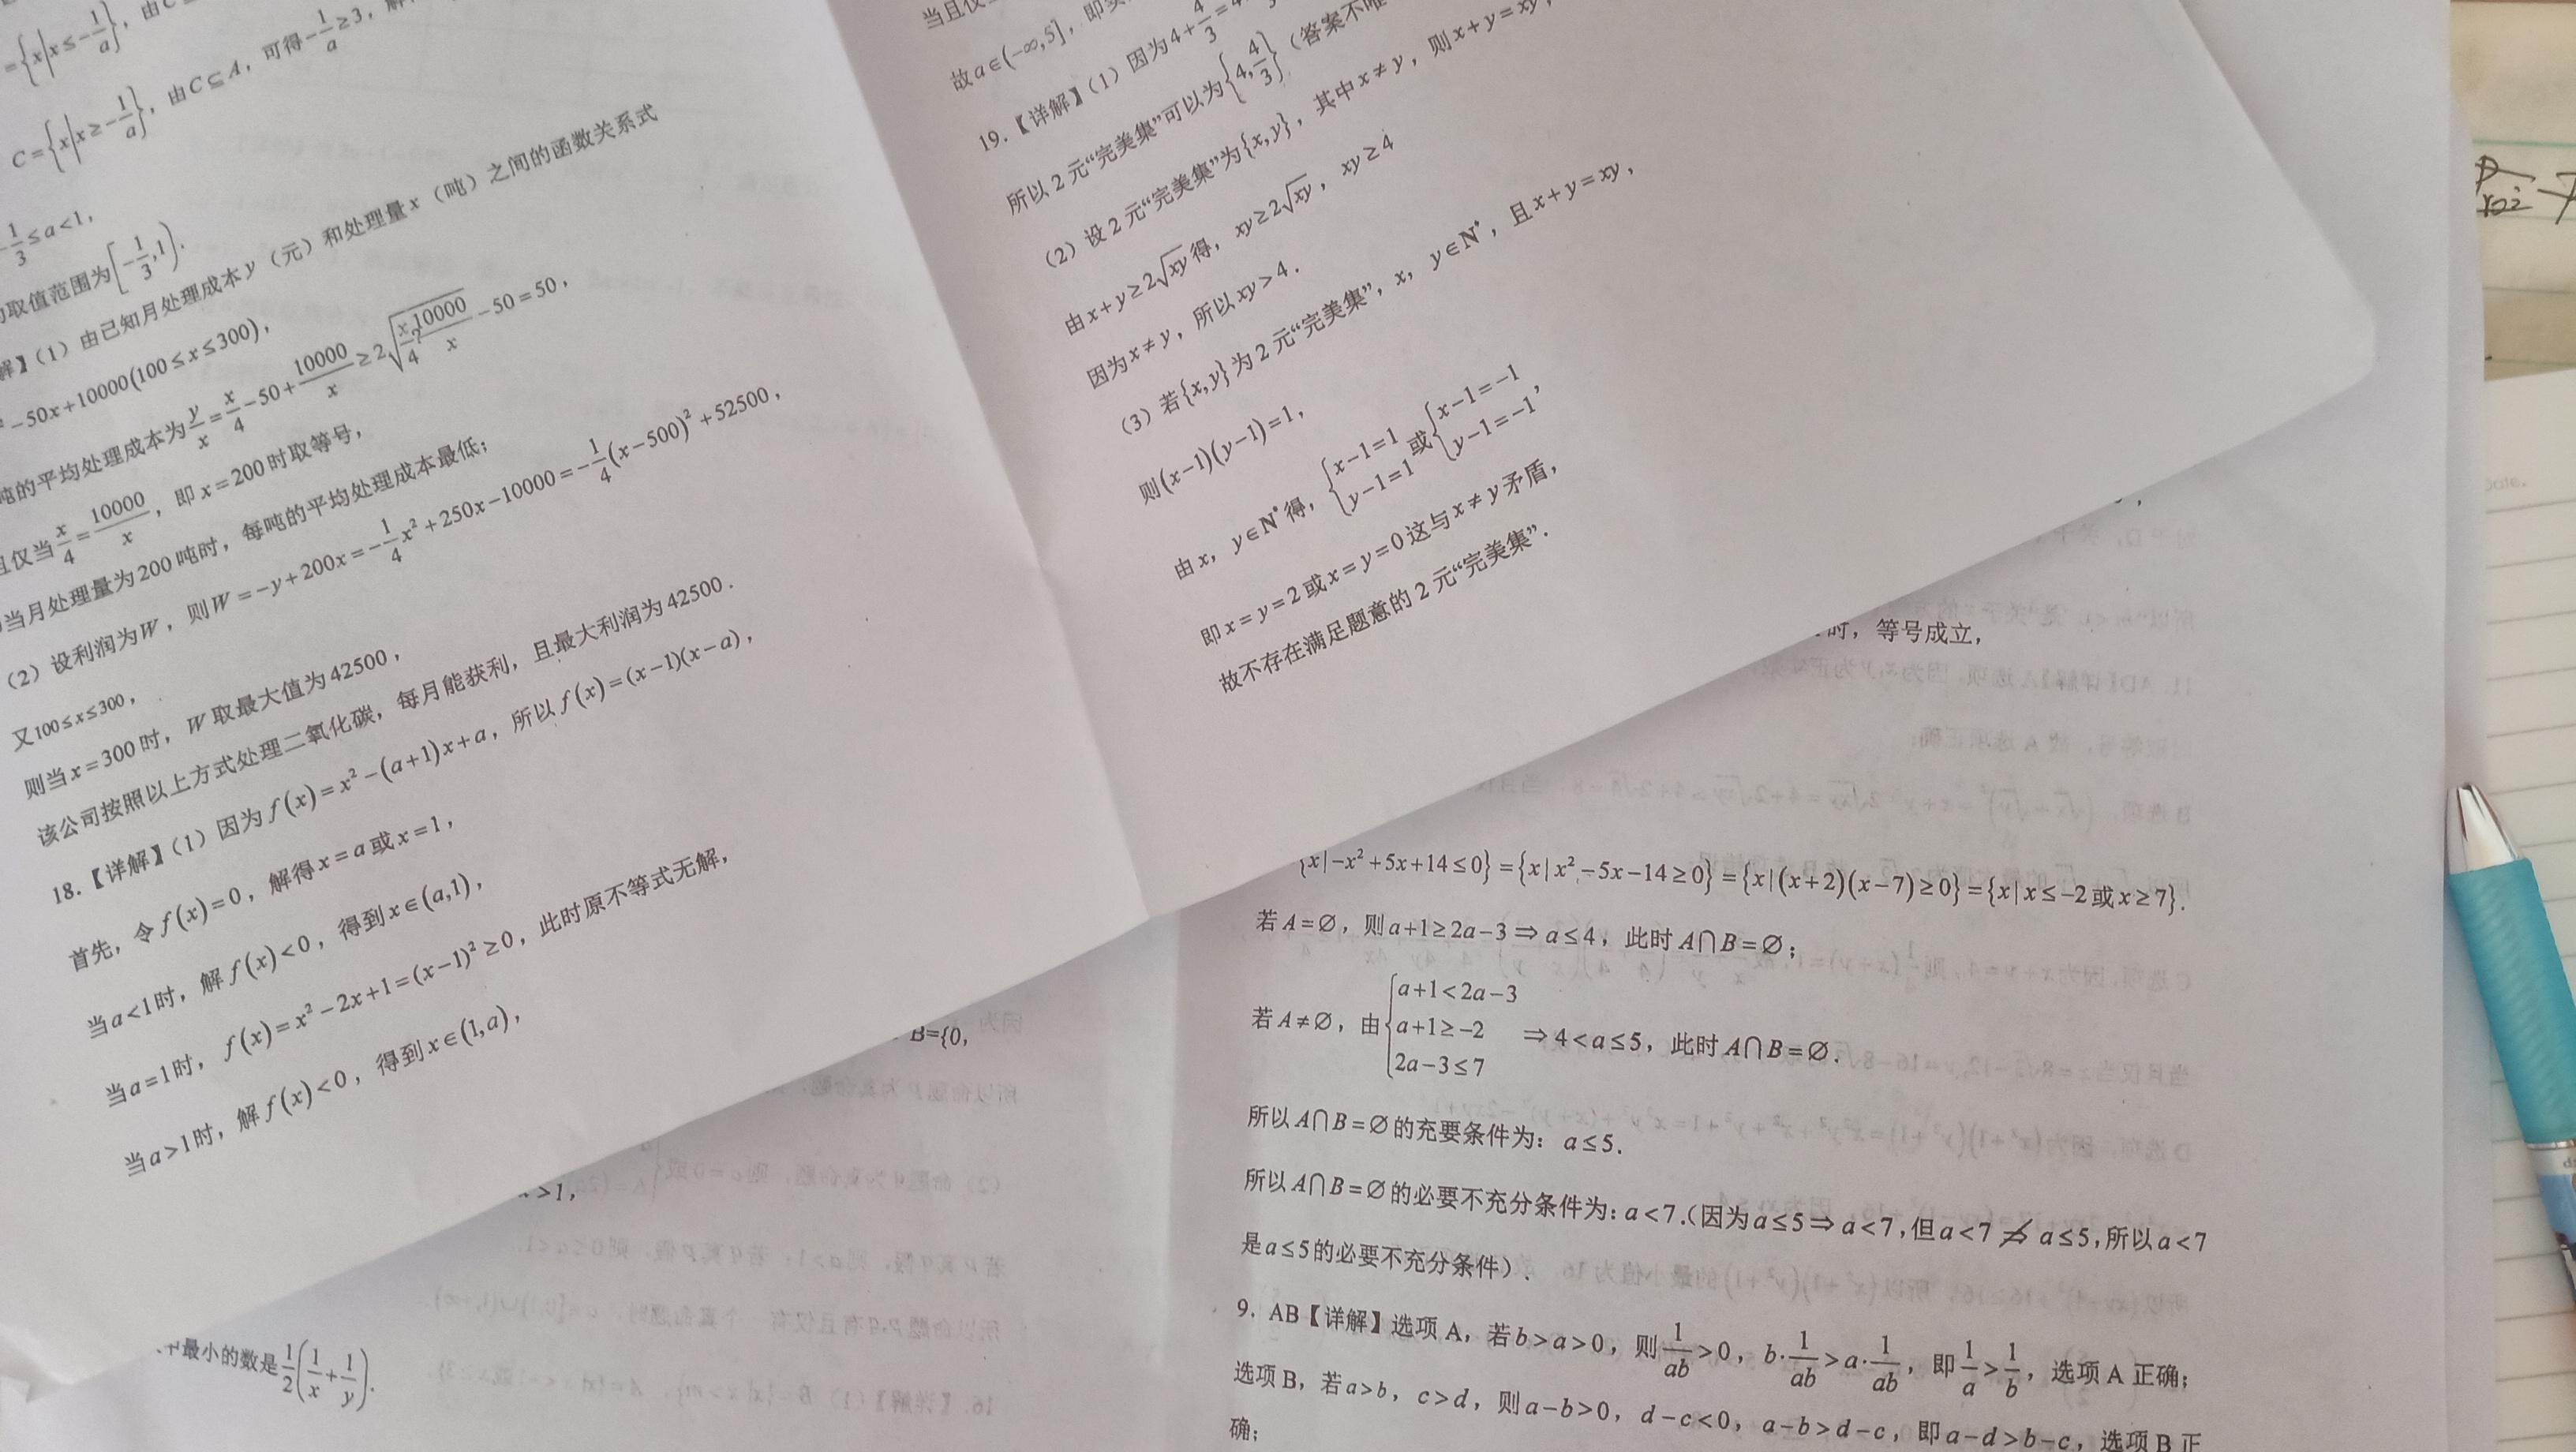 ={x|x≤-1/a}, 由C
C={x|x≥-1/a}, 由C⊆A, 可得-1/a≥3,
-1/3≤a<1,
取值范围为[-1/3,1).
解】（1）由已知月处理成本y（元）和处理量x（吨）之间的函数关系式
-50x+10000(100≤x≤300),
吨的平均处理成本为y/x=x/4-50+10000/x≥2√(x/4·10000/x)-50=50,
且仅当x/4=10000/x, 即x=200时取等号,
当月处理量为200吨时, 每吨的平均处理成本最低;
（2）设利润为W, 则W=-y+200x=-1/4x²+250x-10000=-1/4(x-500)²+52500,
又100≤x≤300,
则当x=300时, W取最大值为42500,
该公司按照以上方式处理二氧化碳, 每月能获利, 且最大利润为42500.
18.【详解】（1）因为f(x)=x²-(a+1)x+a, 所以f(x)=(x-1)(x-a),
首先, 令f(x)=0, 解得x=a或x=1,
当a<1时, 解f(x)<0, 得到x∈(a,1),
当a=1时, f(x)=x²-2x+1=(x-1)²≥0, 此时原不等式无解,
当a>1时, 解f(x)<0, 得到x∈(1,a),
当且仅
故a∈(-∞,5], 即实
19.【详解】（1）因为4+4/3=4
所以2元“完美集”可以为{4,4/3}（答案不唯
（2）设2元“完美集”为{x,y}, 其中x≠y, 则x+y=xy,
由x+y≥2√xy得, xy≥2√xy, xy≥4
因为x≠y, 所以xy>4.
（3）若{x,y}为2元“完美集”, x, y∈N*, 且x+y=xy,
则(x-1)(y-1)=1,
由x, y∈N*得, {x-1=1 y-1=1 或{x-1=-1 y-1=-1,
即x=y=2或x=y=0这与x≠y矛盾,
故不存在满足题意的2元“完美集”.
B={0,
>1,
中最小的数是1/2(1/x+1/y).
时, 等号成立,
{x|-x²+5x+14≤0}={x|x²-5x-14≥0}={x|(x+2)(x-7)≥0}={x|x≤-2或x≥7}.
若A=∅, 则a+1≥2a-3⇒a≤4, 此时A∩B=∅;
若A≠∅, 由{a+1<2a-3 a+1≥-2 2a-3≤7 ⇒4<a≤5, 此时A∩B=∅.
所以A∩B=∅的充要条件为: a≤5.
所以A∩B=∅的必要不充分条件为: a<7.(因为a≤5⇒a<7,但a<7⇏a≤5,所以a<7
是a≤5的必要不充分条件）.
9. AB【详解】选项A, 若b>a>0, 则1/ab>0, b·1/ab>a·1/ab, 即1/a>1/b, 选项A正确;
选项B, 若a>b, c>d, 则a-b>0, d-c<0, a-b>d-c, 即a-d>b-c, 选项B正
确;